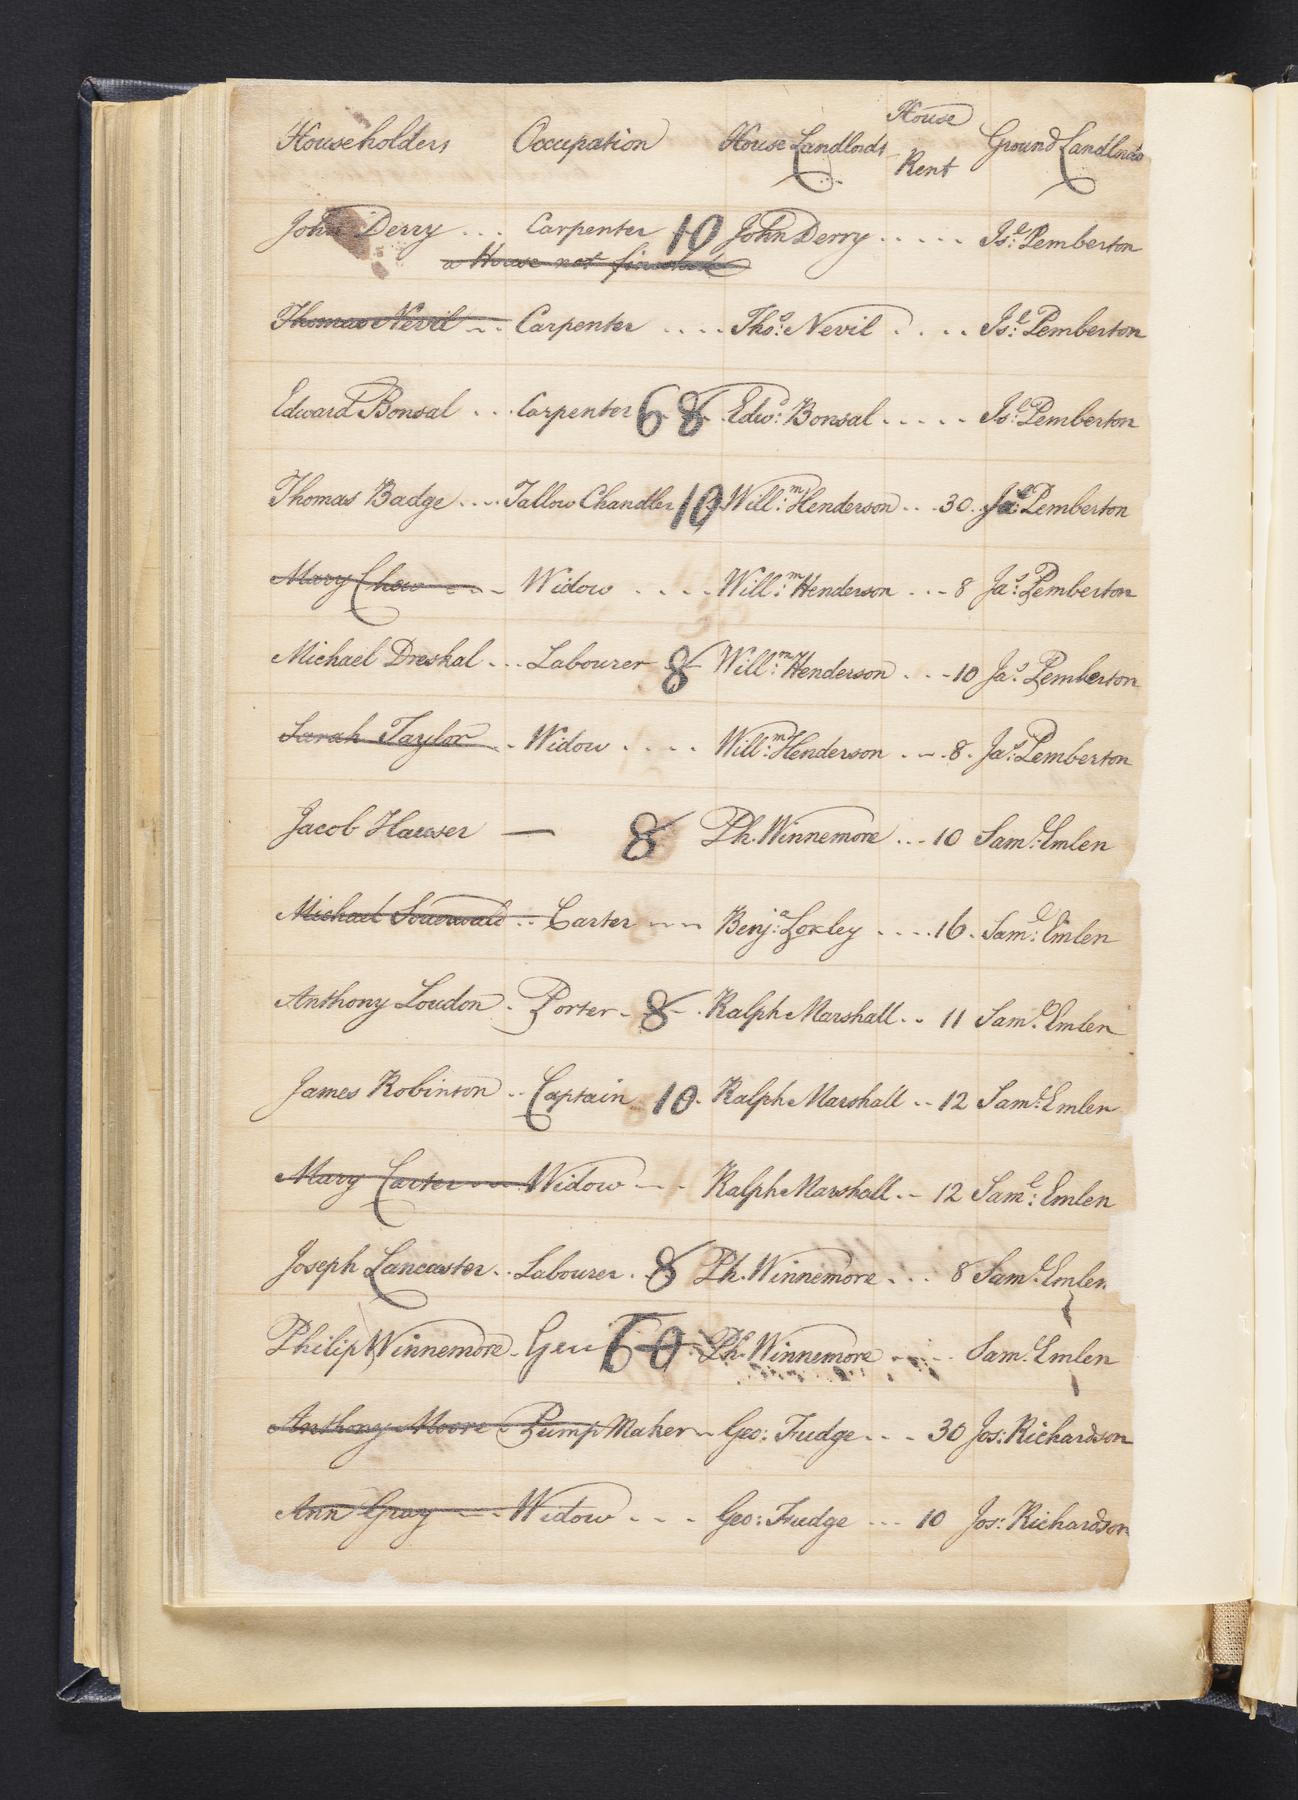 Householders Occupation House Landlords House Rent Ground Landlords
John Derry ... Carpenter 10 John Derry ..... Isl: Pemberton
a House not finished
Thomas Nevil -- Carpenter .... Thos: Nevil .... Isl: Pemberton
Edward Bonsal ... Carpenter 68 Edwd: Bonsal ..... Isl: Pemberton
Thomas Badge .... Tallow Chandler 10 Willm: Henderson ... 30 Jas: Pemberton
Mary Chew --- Widow .... Willm: Henderson ... 8 Jas: Pemberton
Michael Dreskal ... Labourer 8 Willm: Henderson ... 10 Jas: Pemberton
Sarah Taylor .. Widow .... Willm: Henderson ... 8. Jas: Pemberton
Jacob Hauser — 8 Ph. Winnemore ... 10 Saml: Emlen
Michael .. Carter --- Benja: Loxley .... 16. Saml: Emlen
Anthony Loudon . Porter - 8 - . Ralph Marshall .. 11 Saml: Emlen
James Robinson .. Captain 10. Ralph Marshall .. 12 Saml: Emlen
Mary Carter --- Widow --- Ralph Marshall .. 12 Saml: Emlen
Joseph Lancaster .. Labourer .. 8 Ph. Winnemore ... 8 Saml: Emlen
Philip Winnemore - Ph. Winnemore .... Saml: Emlen
Anthony Moore - Pump Maker -- Geo: Fudge ... 30 Jos: Richardson
Ann Gray --- Widow ... Geo: Fudge ... 10 Jos: Richardson